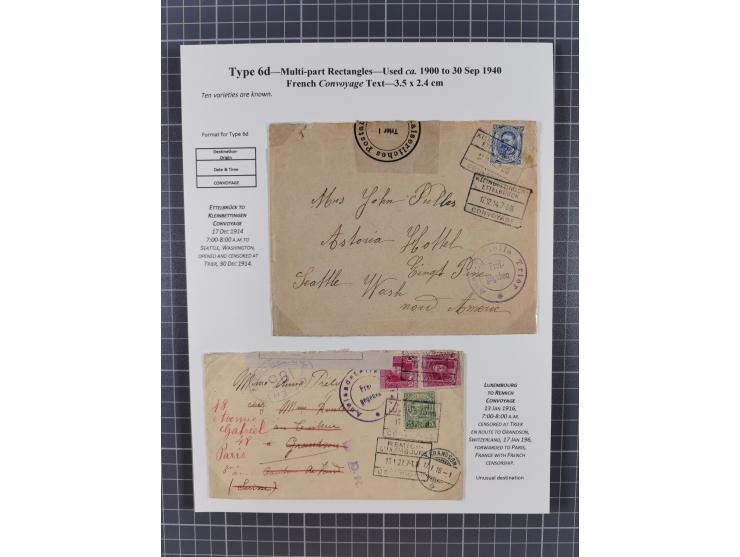 Type 6d—Multi-part Rectangles—Used ca. 1900 to 30 Sep 1940
French Convoyage Text—3.5 x 2.4 cm
Ten varieties are known.
Format for Type 6d
Destination-
Origin
Date & Time
CONVOYAGE
ETTELBRÜCK TO
KLEINBETTINGEN
CONVOYAGE
17 DEC 1914
7:00-8:00 A.M TO
SEATTLE, WASHINGTON,
OPENED AND CENSORED AT
TRIER, 30 DEC 1914.
Trier 1
KLEINBETTINGEN
ETTELBRÜCK
CONVOYAGE
Mrs John
Astoria Hottel
Seattle Wash
nord Americ
Trier
Frei-
gegeben
LUXEMBOURG
TO REMICH
CONVOYAGE
13 JAN 1916,
7:00-8:00 A.M.
CENSORED AT TRIER
EN ROUTE TO GRANDSON,
SWITZERLAND, 17 JAN 196,
FORWARDED TO PARIS,
FRANCE WITH FRENCH
CENSORSHIP.
Unusual destination
chez Mme
Grandson
(Suisse)
18
Gabriel
Paris
Frei-
gegeben
REMICH
LUXEMBOURG
GRANDSON